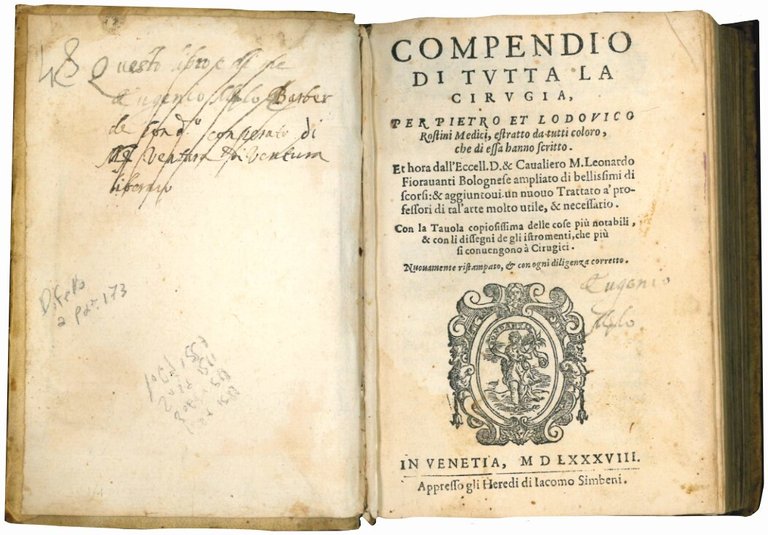 Questo libro e di me
Eugenio Barber
di
Ventura di Ventura
libraro
Difetto
a pag. 173
COMPENDIO
DI TVTTA LA
CIRVGIA,
PER PIETRO ET LODOVICO
Rostini Medici, estratto da tutti coloro,
che di essa hanno scritto.
Et hora dall'Eccell. D. & Caualiero M. Leonardo
Fiorauanti Bolognese ampliato di bellissimi di
scorsi: & aggiuntoui un nuouo Trattato a' pro-
fessori di tal'arte molto utile, & necessario.
Con la Tauola copiosissima delle cose più notabili,
& con li dissegni de gli istromenti, che più
si conuengono à Cirugici.
Nuouamente ristampato, & con ogni diligenza corretto.
Eugenio
IN VENETIA, M D LXXXVIII.
Appresso gli Heredi di Iacomo Simbeni.